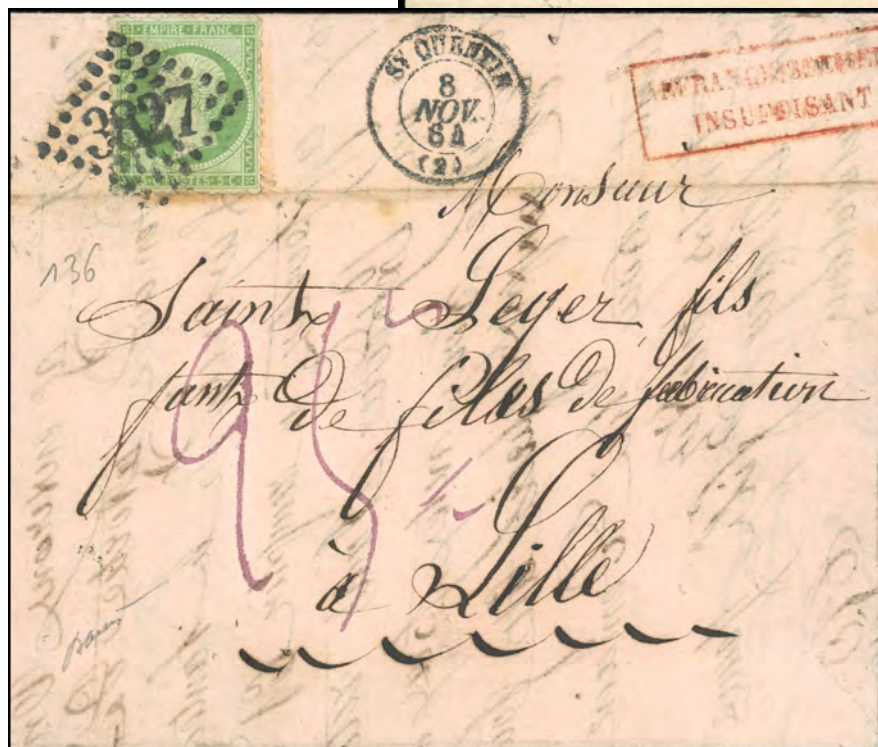 EMPIRE FRANC
3827
POSTES 5 C
ST QUENTIN
8
NOV.
64
(2)
AFFRANCHISSEMENT
INSUFFISANT
Monsieur
136
Saint Leger fils
fant de filés de fabrication
25
à Lille